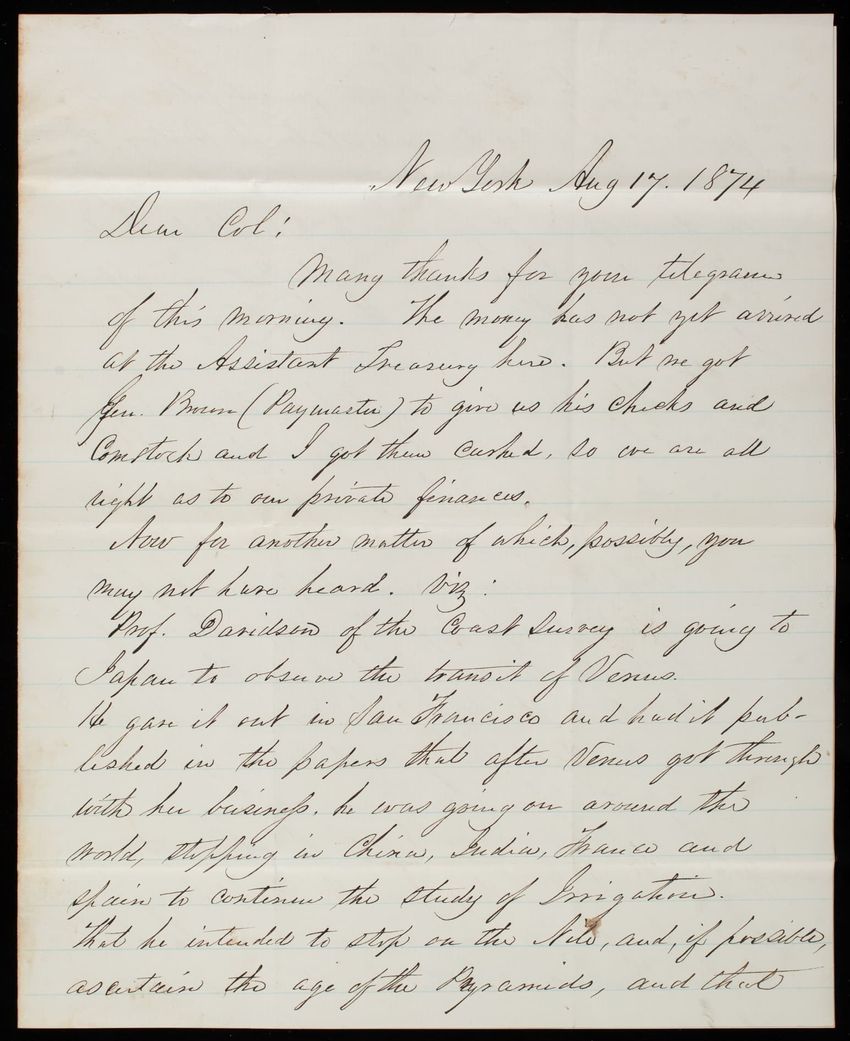 New York Aug 17. 1874
Dear Col:
Many thanks for your telegram
of this morning. The money has not yet arrived
at the Assistant Treasury here. But we got
Gen. Brown (Paymaster) to give us his checks and
Comstock and I got them cashed, so we are all
right as to our private finances.
Now for another matter of which, possibly, you
may not have heard. Viz:
Prof. Davidson of the Coast Survey is going to
Japan to observe the transit of Venus.
He gave it out in San Francisco and had it pub-
lished in the papers that after Venus got through
with her business. he was going on around the
world, stopping in China, India, France and
Spain to continue the study of Irrigation.
That he intended to stop on the Nile, and, if possible,
ascertain the age of the Pyramids, and that